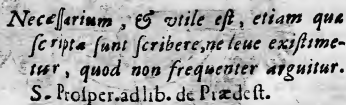 Necessarium, & vtile est, etiam quæ
scripta sunt scribere, ne leue existime-
tur, quod non frequenter arguitur.
S. Prosper. ad lib. de Prædest.